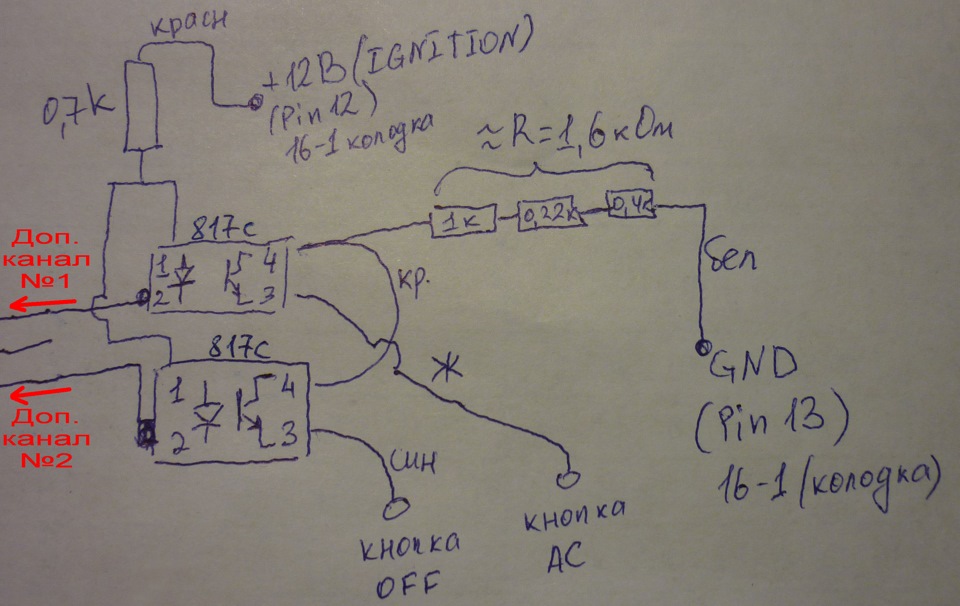 красн
+12В (IGNITION)
(Pin 12)
16-1 колодка
0,7k
≈R=1,6 кОм
1к
0,22к
0,4к
бел
GND
(Pin 13)
16-1 (колодка)
817C
1
2
4
3
кр.
Ж
817C
1
2
4
3
син
кнопка
OFF
кнопка
AC
Доп.
канал
№1
Доп.
канал
№2